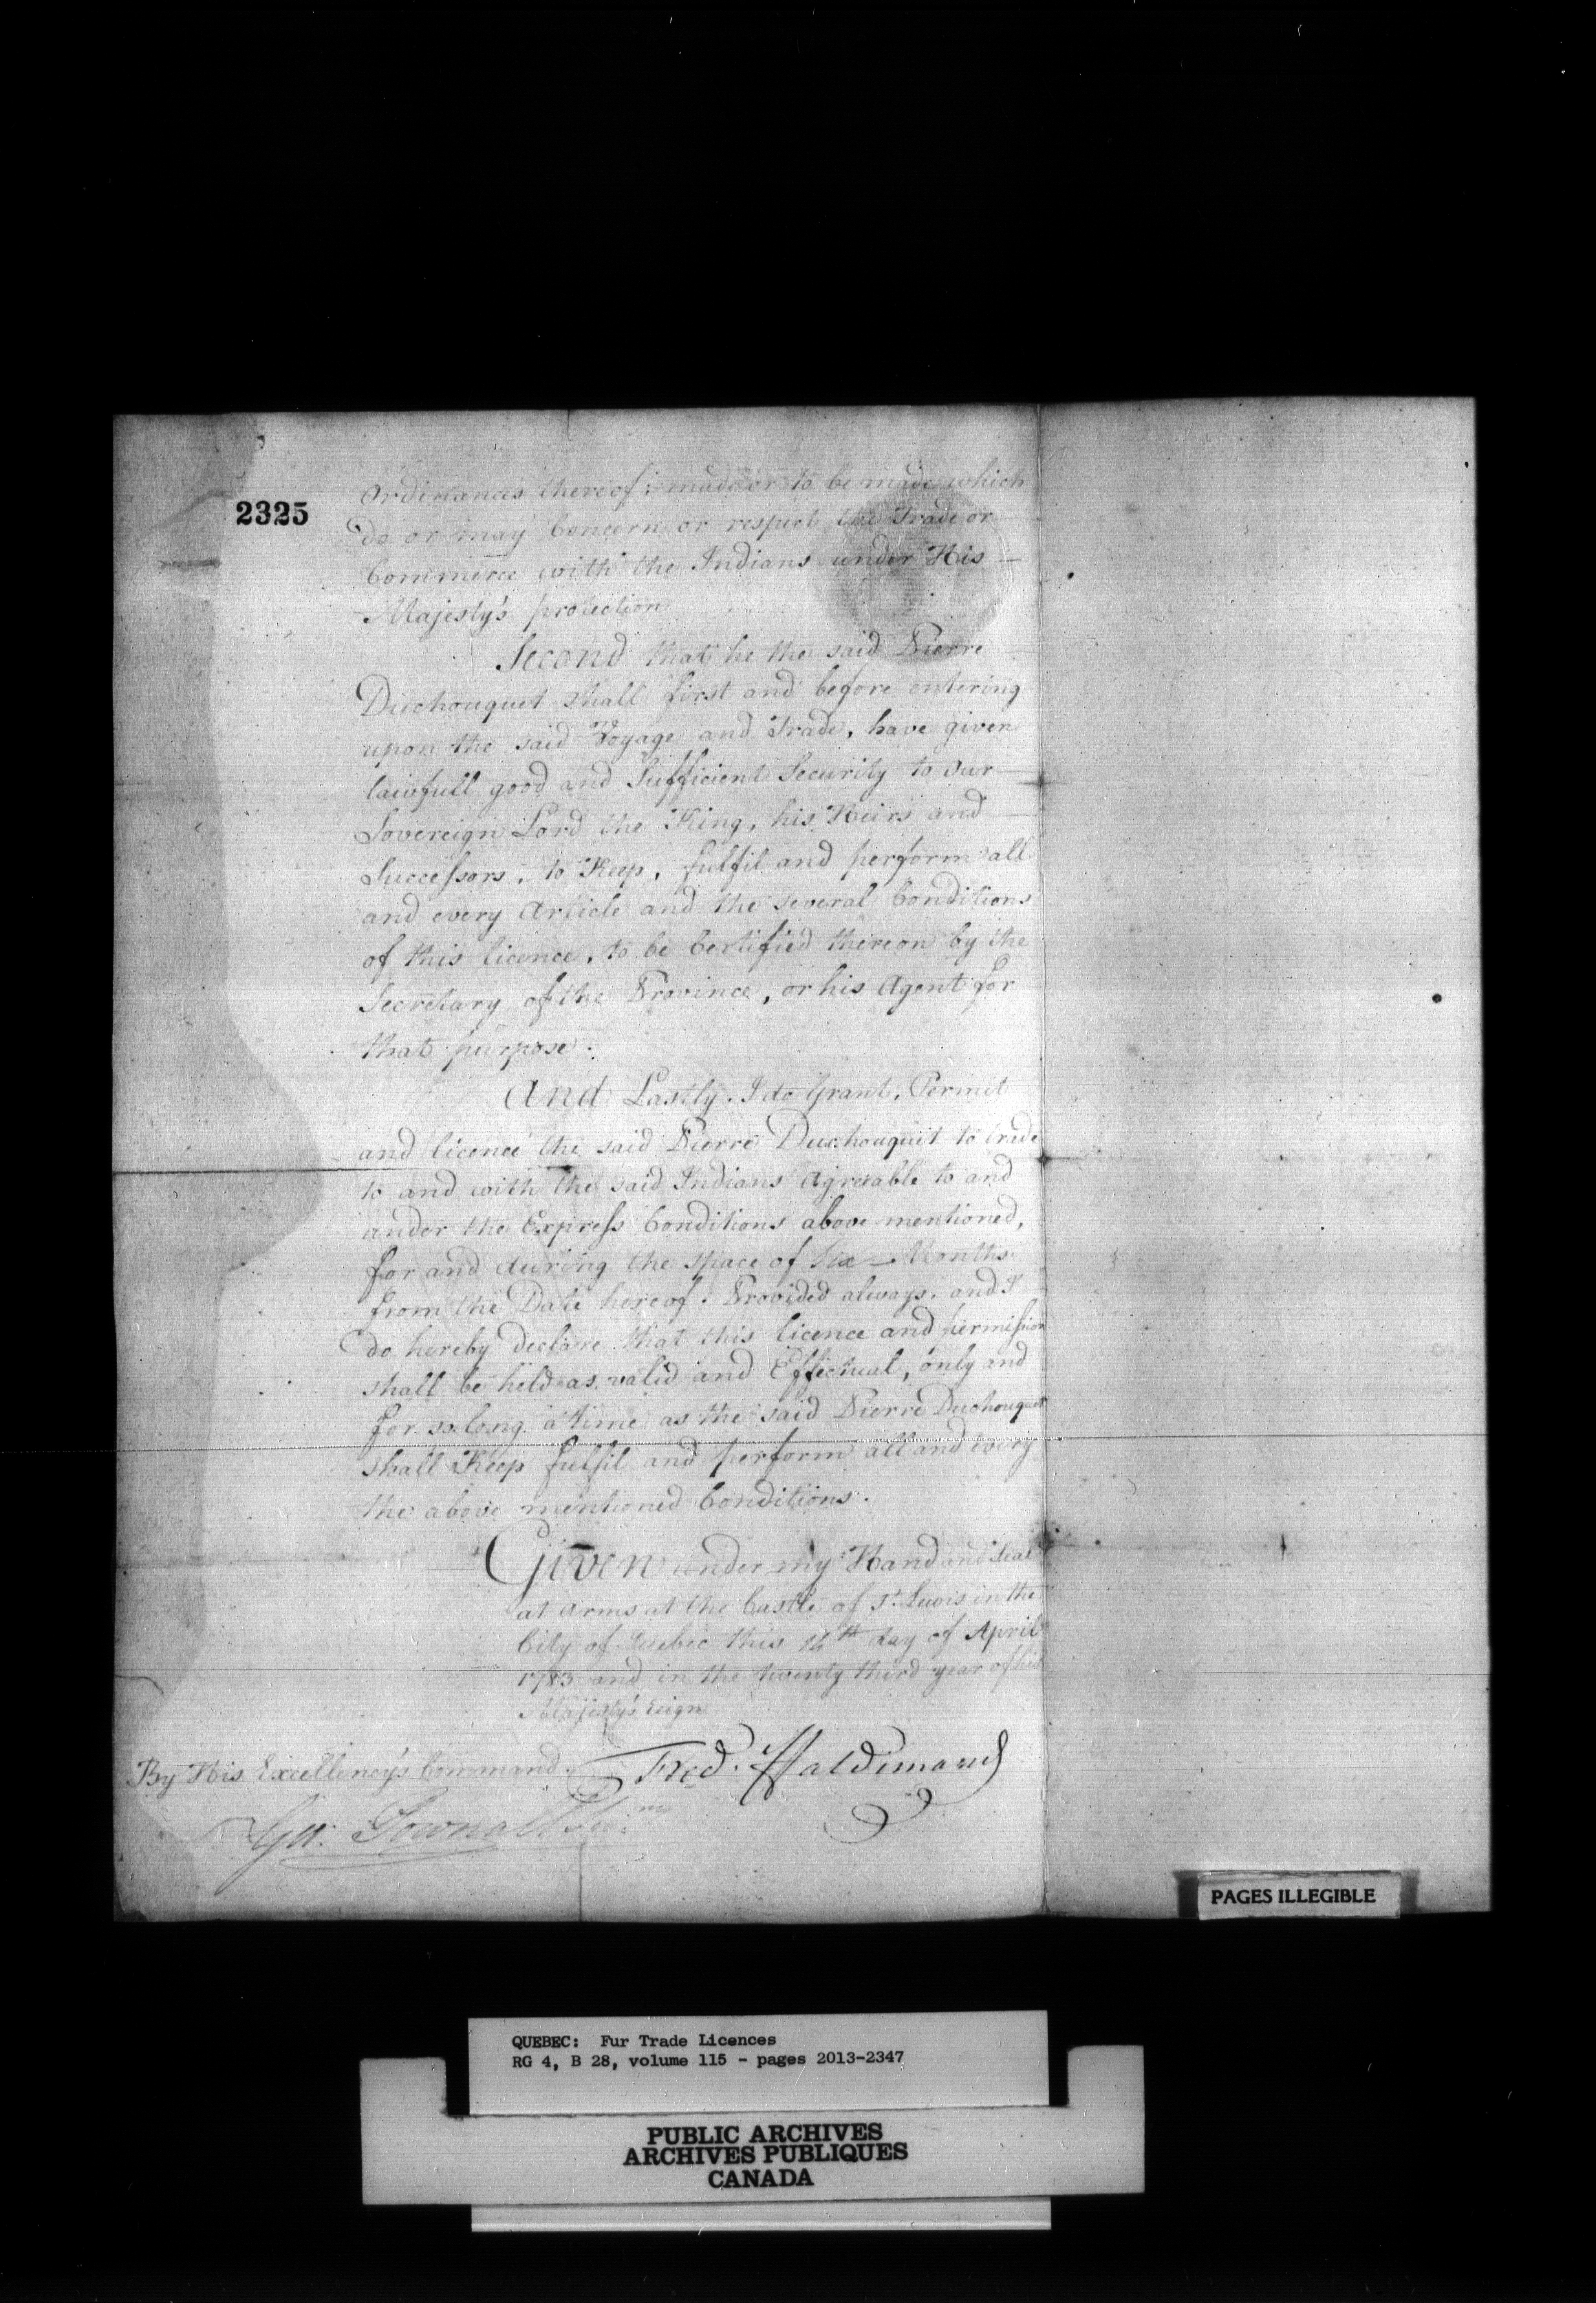 2325
Ordinances thereof made or to be made which
do or may Concern or respect the Trade or
Commerce with the Indians under His
Majesty's protection
Second that he the said Pierre
Duchouquet shall first and before entering
upon the said Voyage and Trade, have given
lawfull good and Sufficient Security to Our
Sovereign Lord the King, his Heirs and
Successors, to Keep, fulfil and perform all
and every Article and the several Conditions
of this licence, to be Certified thereon by the
Secretary of the Province, or his Agent for
that purpose.
And Lastly. I do Grant, Permit
and licence the said Pierre Duchouquet to trade
to and with the said Indians Agreable to and
under the Express Conditions above mentioned,
for and during the space of Six Months
from the Date hereof. Provided always, and I
do hereby declare that this licence and permission
shall be held as valid and Effectual, only and
for so long a time as the said Pierre Duchouquet
shall Keep fulfil and perform all and every
the above mentioned Conditions.
Given under my Hand and Seal
at Arms at the Castle of St. Lewis in the
City of Quebec this 14th day of April
1783 and in the twenty third year of his
Majesty's Reign
By His Excellency's Command. Fred. Haldimand
Geo: Pownall Secry
PAGES ILLEGIBLE
QUEBEC: Fur Trade Licences
RG 4, B 28, volume 115 - pages 2013-2347
PUBLIC ARCHIVES
ARCHIVES PUBLIQUES
CANADA